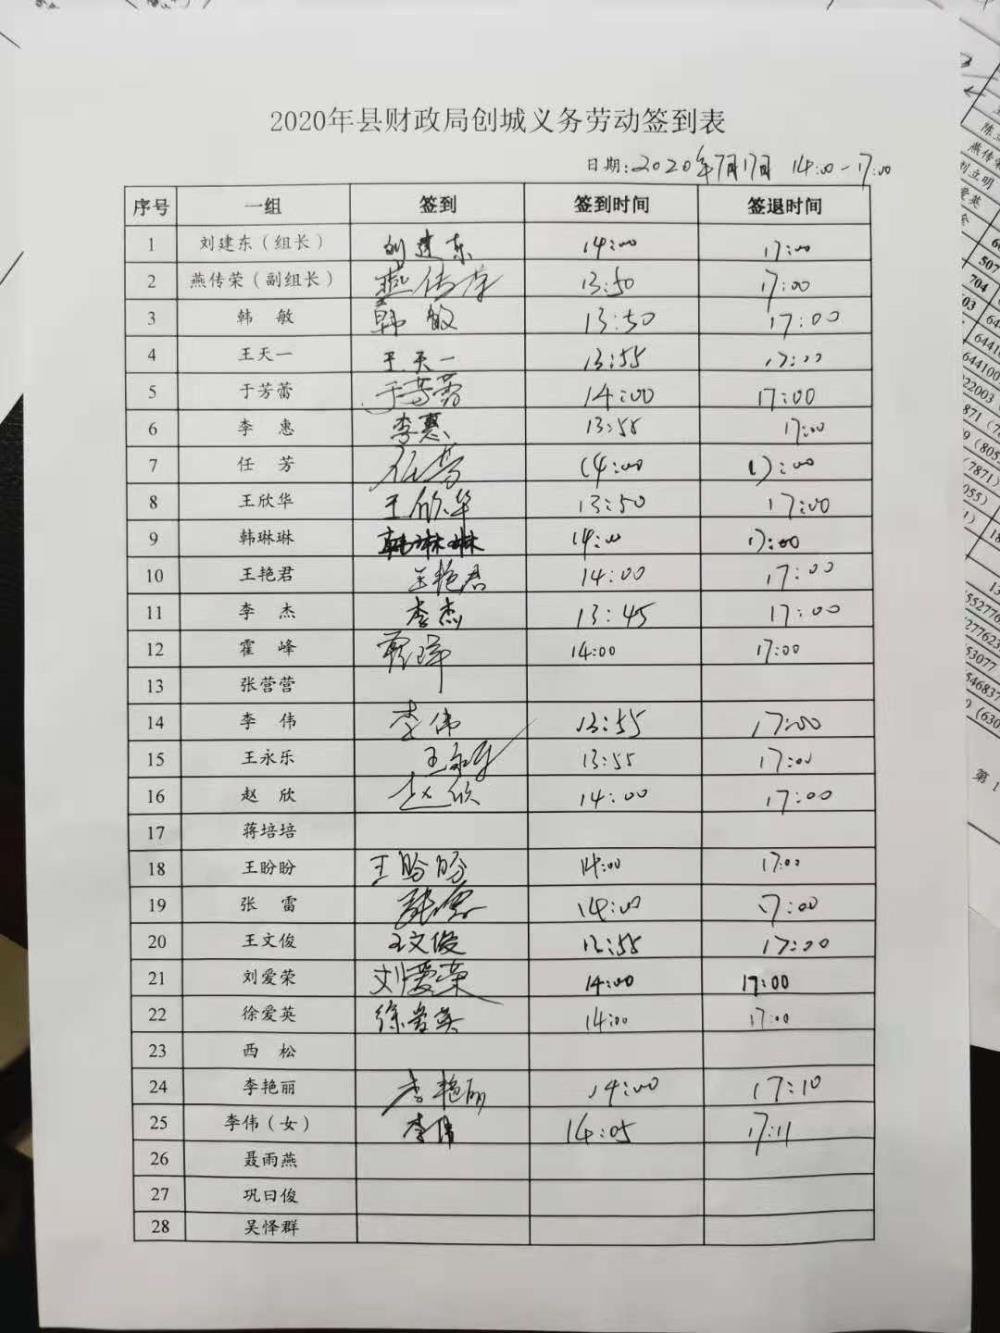 2020年县财政局创城义务劳动签到表
日期:2020年7月17日 14:00-17:00
序号 一组 签到 签到时间 签退时间
1 刘建东（组长） 刘建东 14:00 17:00
2 燕传荣（副组长） 燕传荣 13:50 17:00
3 韩 敏 韩敏 13:50 17:00
4 王天一 王天一 13:55 17:00
5 于芳蕾 于芳蕾 14:00 17:00
6 李 惠 李惠 13:55 17:00
7 任 芳 任芳 14:00 17:00
8 王欣华 王欣华 13:50 17:00
9 韩琳琳 韩琳琳 14:00 17:00
10 王艳君 王艳君 14:00 17:00
11 李 杰 李杰 13:45 17:00
12 霍 峰 霍峰 14:00 17:00
13 张营营
14 李 伟 李伟 13:55 17:00
15 王永乐 王永乐 13:55 17:00
16 赵 欣 赵欣 14:00 17:00
17 蒋培培
18 王盼盼 王盼盼 14:00 17:00
19 张 雷 张雷 14:00 17:00
20 王文俊 王文俊 13:55 17:00
21 刘爱荣 刘爱荣 14:00 17:00
22 徐爱英 徐爱英 14:00 17:00
23 西 松
24 李艳丽 李艳丽 14:00 17:10
25 李伟（女） 李伟 14:05 17:11
26 聂雨燕
27 巩曰俊
28 吴怿群